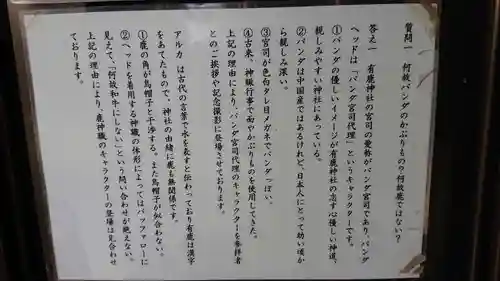 質問一　何故パンダのかぶりもの？何故鹿ではない？
答え一　有鹿神社の宮司の愛称がパンダ宮司であり、パンダ
ヘッドは「パンダ宮司代理」というキャラクターです。
①パンダの優しいイメージが有鹿神社の志す心優しい神道、
親しみやすい神社にあっている。
②パンダは中国産ではあるけれど、日本人にとって幼い頃か
ら親しみ深い。
③宮司が色白タレ目メガネでパンダっぽい。
④古来、神職行事で面やかぶりものを使用してきた。
上記の理由により、パンダ宮司代理のキャラクターを参拝者
とのご挨拶や記念撮影に登場させております。
アルカ　は古代の言葉で水を表すと伝わっており有鹿は漢字
をあてたもので、神社の由緒に鹿も無関係です。
①鹿の角が烏帽子と干渉する。また烏帽子が似合わない。
②ヘッドを着用する神職の体形によってはバッファローに
見えて、「何故和牛にしない」という問い合わせが絶えない。
上記の理由により、鹿神職のキャラクターの登場は見合わせ
ております。